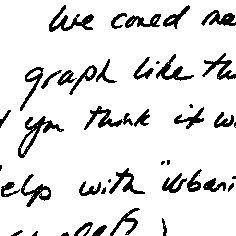 We could ma
graph like th
you think it w
elp with "urbani